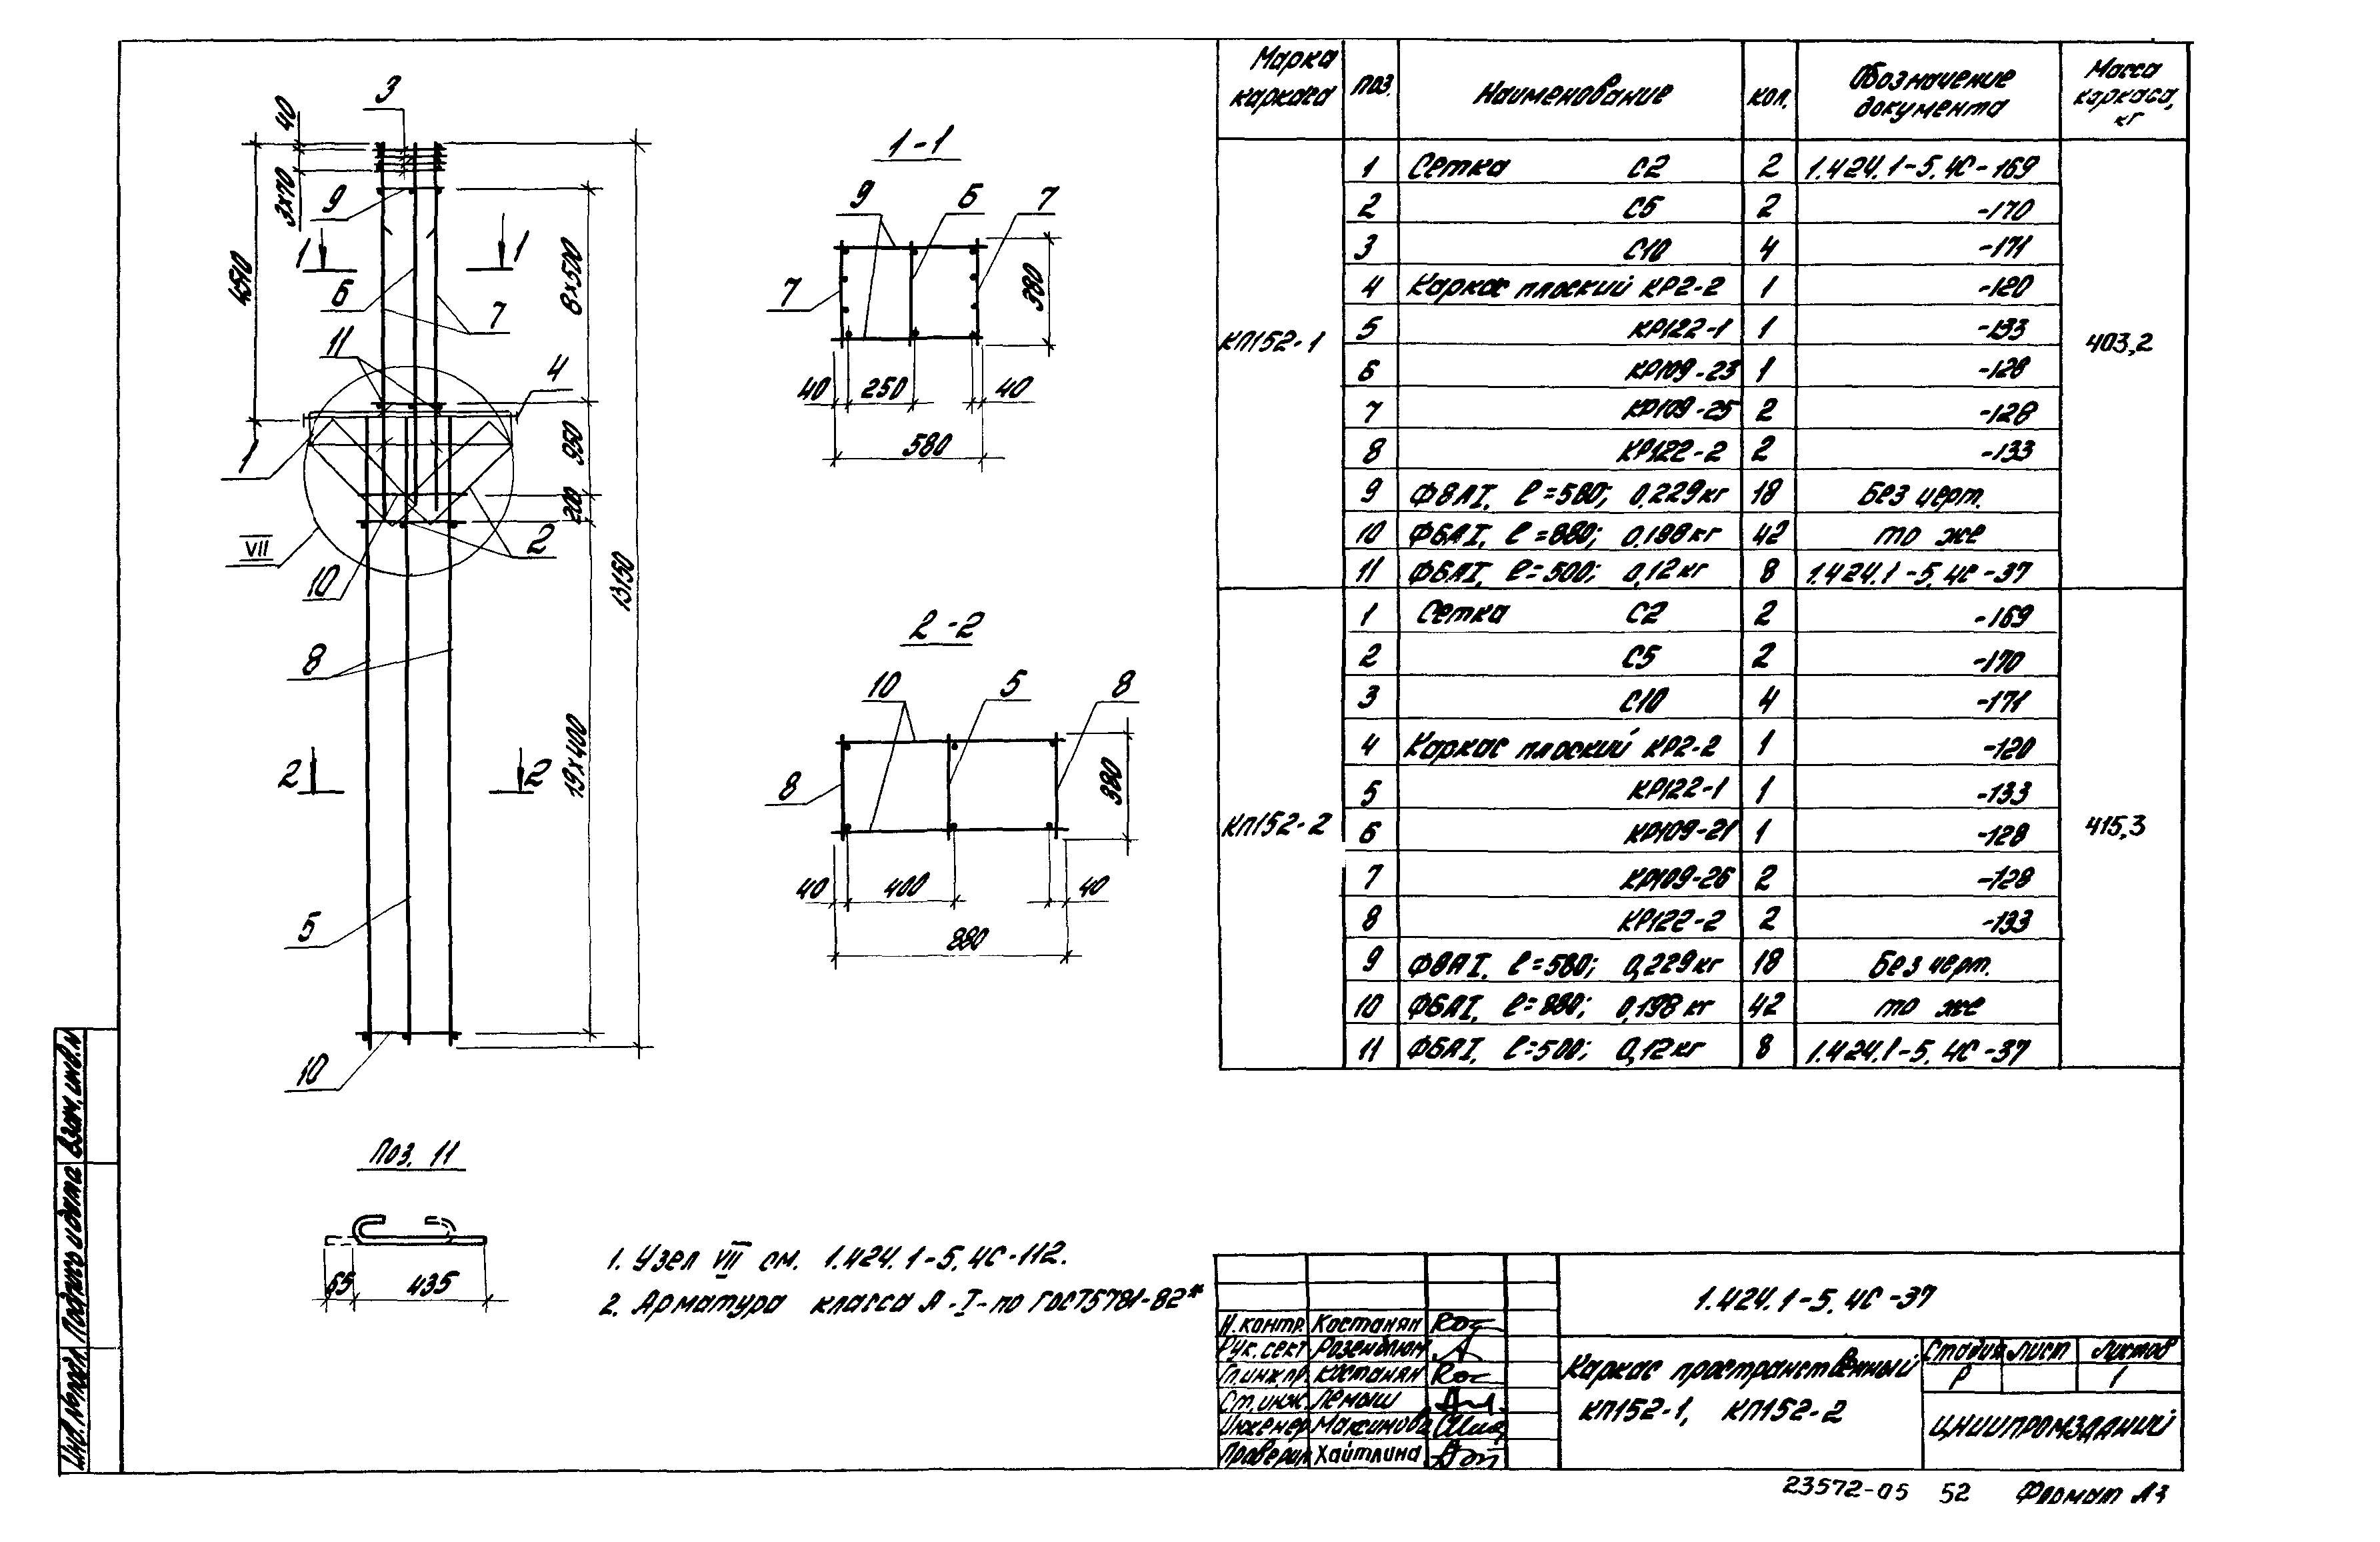 Марка каркаса | поз. | Наименование | кол. | Обозначение документа | Масса каркаса, кг
КП152-1 | 403,2
1 | Сетка С2 | 2 | 1.424.1-5.4С-169
2 | С5 | 2 | -170
3 | С10 | 4 | -171
4 | Каркас плоский КР2-2 | 1 | -120
5 | КР122-1 | 1 | -133
6 | КР109-23 | 1 | -128
7 | КР109-25 | 2 | -128
8 | КР122-2 | 2 | -133
9 | Ф8АI, ℓ=580; 0,229кг | 18 | Без черт.
10 | Ф6АI, ℓ=880; 0,198кг | 42 | то же
11 | Ф6АI, ℓ=500; 0,12кг | 8 | 1.424.1-5.4С-37
КП152-2 | 415,3
1 | Сетка С2 | 2 | -169
2 | С5 | 2 | -170
3 | С10 | 4 | -171
4 | Каркас плоский КР2-2 | 1 | -120
5 | КР122-1 | 1 | -133
6 | КР109-21 | 1 | -128
7 | КР109-26 | 2 | -128
8 | КР122-2 | 2 | -133
9 | Ф8АI, ℓ=580; 0,229кг | 18 | Без черт.
10 | Ф6АI, ℓ=880; 0,198кг | 42 | то же
11 | Ф6АI, ℓ=500; 0,12кг | 8 | 1.424.1-5.4С-37
3
40
3х70
9
1
1
4590
6
7
8х500
11
4
1
950
200
VII
2
10
13150
8
19х400
2
2
5
10
1-1
9
6
7
7
380
40
250
40
580
2-2
10
5
8
8
380
40
400
40
880
Поз. 11
65
435
1. Узел VII см. 1.424.1-5.4С-112.
2. Арматура класса А-I-по ГОСТ5781-82*
Взам.инв.N
Подпись и дата
Инв.Nподл.
Н.контр. Костанян
Рук.сект Розенблюм
Гл.инж.пр. Костанян
Ст.инж. Лемыш
Инженер Максимова
Проверил Хайтлина
1.424.1-5.4С-37
Каркас пространственный
КП152-1, КП152-2
Стадия лист листов
Р 1
ЦНИИПРОМЗДАНИЙ
23572-05 52 Формат А3